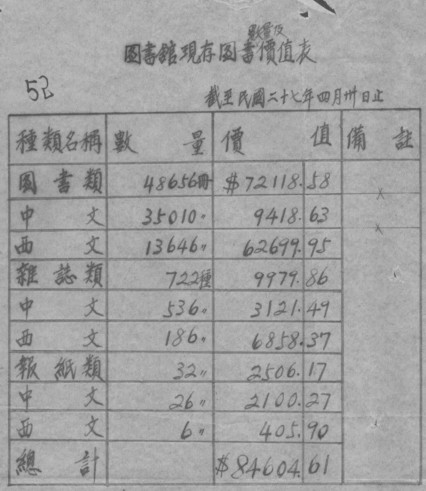 數量及
圖書館現存圖書價值表
52
截至民國二十七年四月卅日止
種類名稱 數量 價值 備註
圖書類 48656冊 $72118.58
中文 35010〃 9418.63
西文 13646〃 62699.95
雜誌類 722種 9979.86
中文 536〃 3121.49
西文 186〃 6858.37
報紙類 32〃 2506.17
中文 26〃 2100.27
西文 6〃 405.90
總計 $84604.61